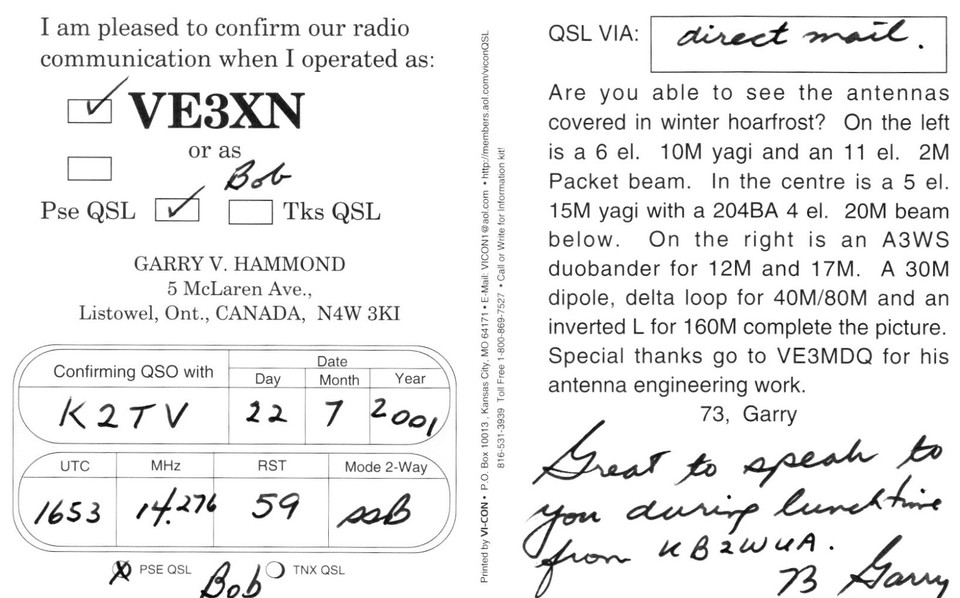 I am pleased to confirm our radio
communication when I operated as:
VE3XN
or as
Bob
Pse QSL
Tks QSL
GARRY V. HAMMOND
5 McLaren Ave.,
Listowel, Ont., CANADA, N4W 3KI
Confirming QSO with
Date
Day Month Year
K2TV 22 7 2001
UTC MHz RST Mode 2-Way
1653 14.276 59 SSB
PSE QSL
Bob
TNX QSL
Printed by VI-CON • P.O. Box 10013 , Kansas City, MO 64171 • E-Mail: VICON1@aol.com • http://members.aol.com/viconQSL
816-531-3939 Toll Free 1-800-869-7527 • Call or Write for Information kit!
QSL VIA: direct mail.
Are you able to see the antennas
covered in winter hoarfrost? On the left
is a 6 el. 10M yagi and an 11 el. 2M
Packet beam. In the centre is a 5 el.
15M yagi with a 204BA 4 el. 20M beam
below. On the right is an A3WS
duobander for 12M and 17M. A 30M
dipole, delta loop for 40M/80M and an
inverted L for 160M complete the picture.
Special thanks go to VE3MDQ for his
antenna engineering work.
73, Garry
Great to speak to
you during lunchtime
from KB2WUA.
73 Garry